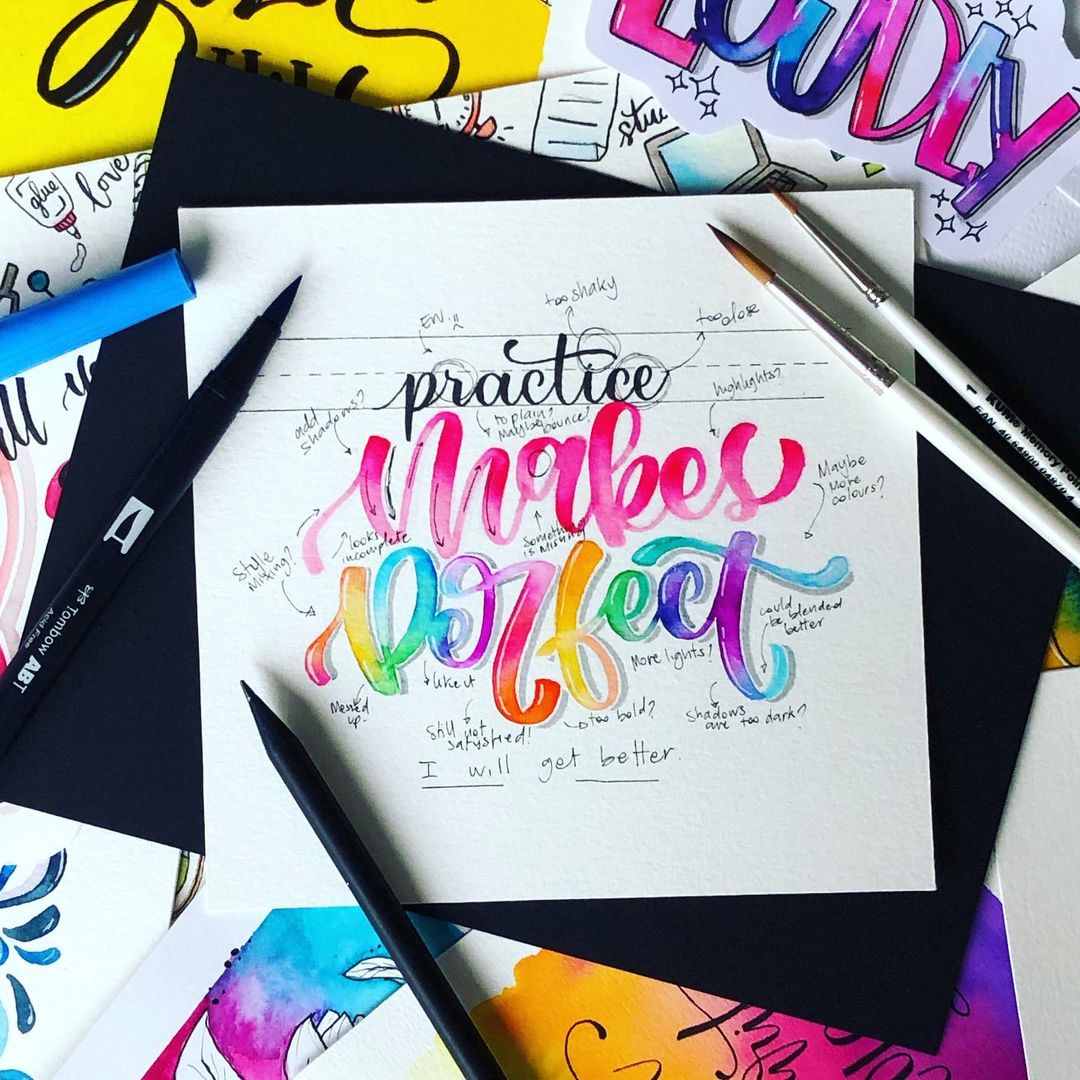 LOUDLY
stu
glue
love
too shaky
EW.
too close
practice
add
shadows?
to plain?
Maybe bounce?
highlights?
Makes
Maybe
More
colours?
looks
incomplete
Something
is Missing
Style
Mixing?
Perfect
could
be blended
better
More lights?
like it
Messed
up.
Still not
satysfied!
too bold?
Shadows
are too dark?
I will get better.
Tombow ABT
Acid Free